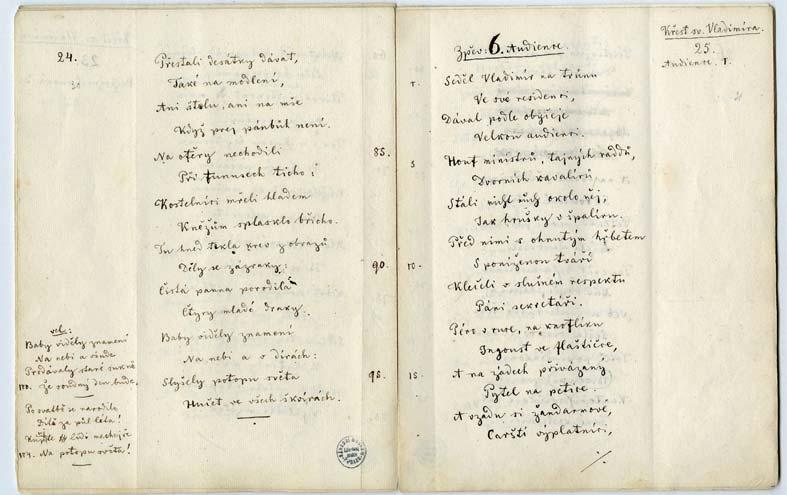 24.
Přestali desátky dávat,
Také na modlení,
Ani štolu, ani na mše
Když prej pánbůh není.
Na ofěry nechodili 85.
Při funusech ticho;
Kostelníci mřeli hladem
Kněžům splasklo břicho.
Tu hned tekla krev z obrazů
Děly se zázraky; 90.
Čistá panna porodila
Čtyry mladé draky.
Baby viděly znamení
Na nebi a v dírách:
Slyšely potopu světa 95.
Hučet ve všech škvírách.
vel:
Baby viděly znamení
Na nebi a všude
Prodávaly staré sukně
100. že soudný den bude.
Po svatbě se narodilo
Dítě za půl léta!
lidi nechuje
104. Na potopu světa!
Zpěv: 6. Audience.
1. Seděl Vladimír na trůnu
Ve své residenci,
Dával podle obyčeje
Velkou audienci.
5 Houf ministrů, tajných raddů,
Dvorních kavalírů
Stáli nichl nichl okolo něj,
Jak hrušky v špalíru.
Před nimi s ohnutým hřbetem
10. S poníženou tváří
Klečeli v slušném respektu
Páni sekretáři.
Péro v ruce, na knoflíku
Ingoust ve flaštičce,
15. A na zádech přivázaný
Pytel na petice.
A vzadu si žandarmové,
Carští výplatníci,
Křest sv. Vladimíra.
25.
Audience. 1.